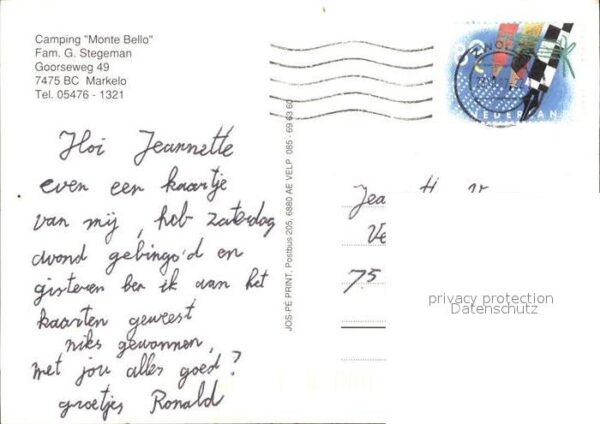 Camping "Monte Bello"
Fam. G. Stegeman
Goorseweg 49
7475 BC Markelo
Tel. 05476 - 1321
Hoi Jeannette
even een kaartje
van mij, heb zaterdag
avond gebingo'd en
gisteren ben ik aan het
kaarten geweest
niks gewonnen,
met jou alles goed?
groetjes Ronald
JOS-PÉ PRINT, Postbus 205, 6880 AE VELP 085 - 69 63 60
80
NEDERLAND
Jea
Ve
75
privacy protection
Datenschutz